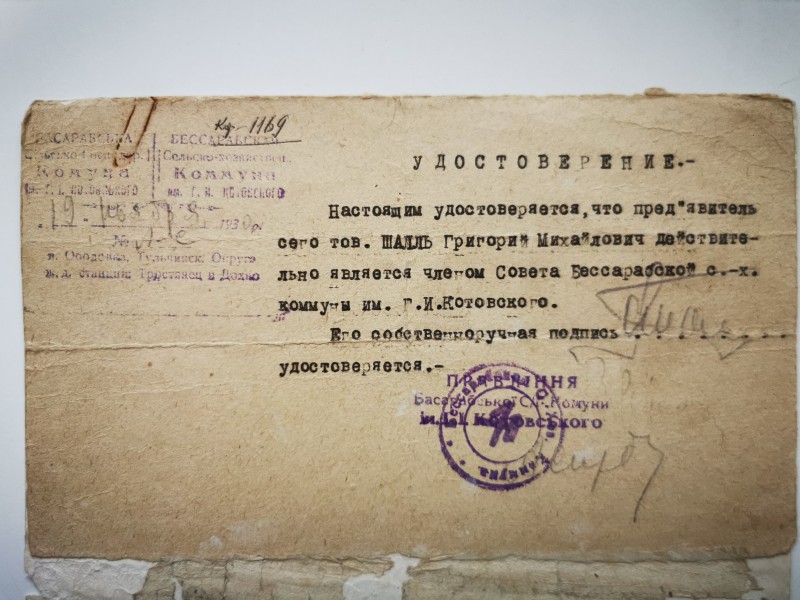 Кр-1169
БАСАРАБСЬКА
Комуна
БЕССАРАБСКАЯ
Сельско-хозяйствен.
Коммуна
им. Г. И. КОТОВСКОГО
19
1930 р.
с. Ободовка, Тульчинск. Округа
ж. д. станция Тростянец
УДОСТОВЕРЕНИЕ.-
Настоящим удостоверяется, что пред"явитель
сего тов. ШАЛЛЬ Григорий Михайлович действите-
льно является членом Совета Бессарабской с.-х.
коммуны им. Г.И.Котовского.
Его собственноручная подпись
удостоверяется.-
ПРАВЛІННЯ
Басарабської С/г. Комуни
ім. Г. І. Котовського